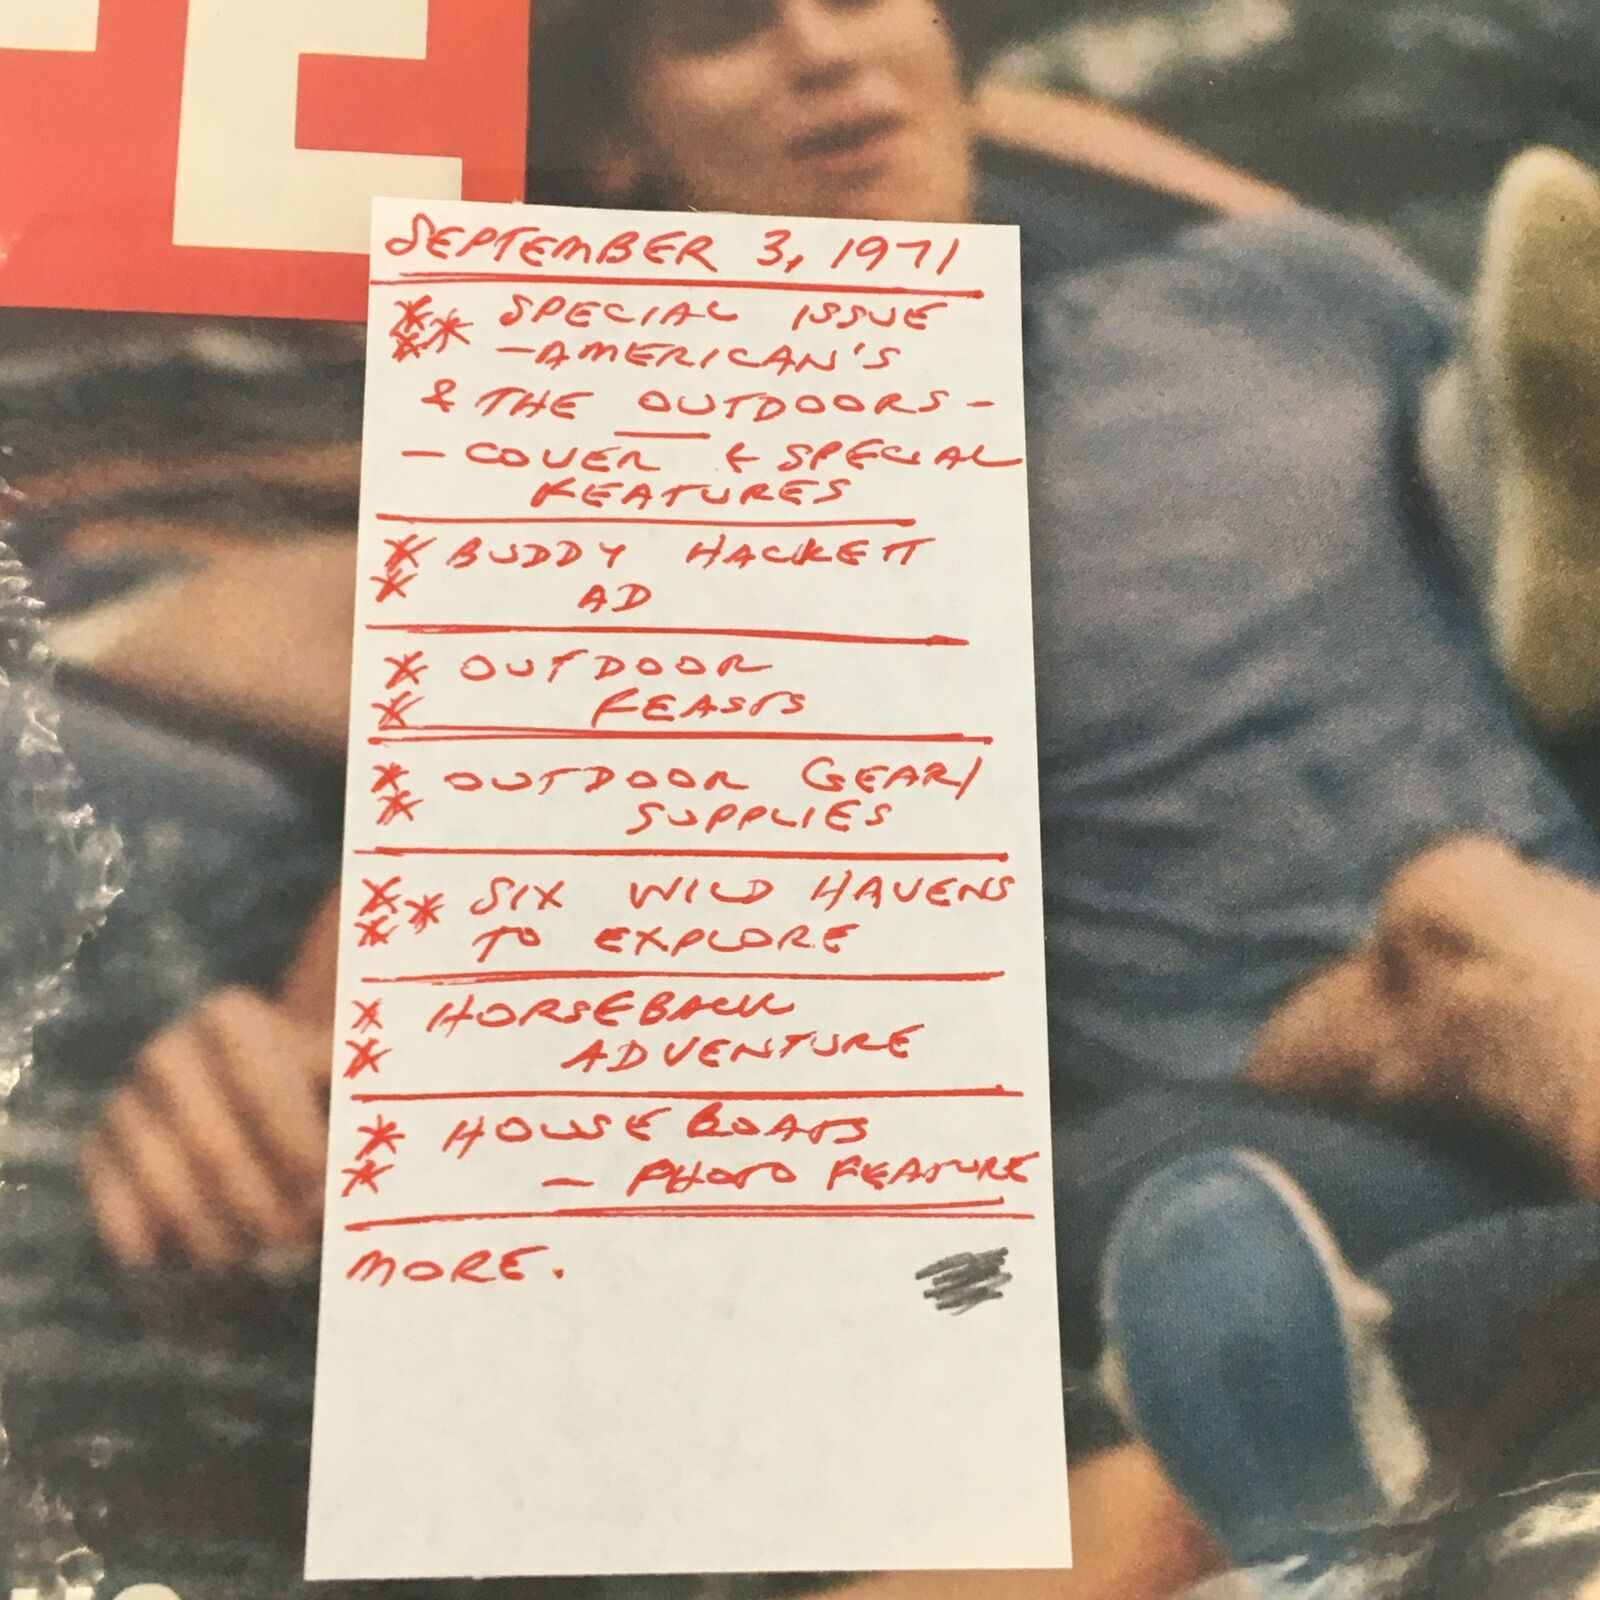 FE
SEPTEMBER 3, 1971
** * SPECIAL ISSUE
-AMERICAN'S
& THE OUTDOORS -
- COVER & SPECIAL
FEATURES
* BUDDY HACKETT
* AD
* OUTDOOR
* FEASTS
* OUTDOOR GEAR/
* SUPPLIES
** * SIX WILD HAVENS
TO EXPLORE
* HORSEBACK
* ADVENTURE
* HOUSE BOATS
* - PHOTO FEATURE
MORE.